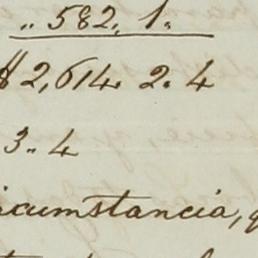 „ 582. 1.
$ 2,614. 2. 4
3.. 4
circumstancia, q